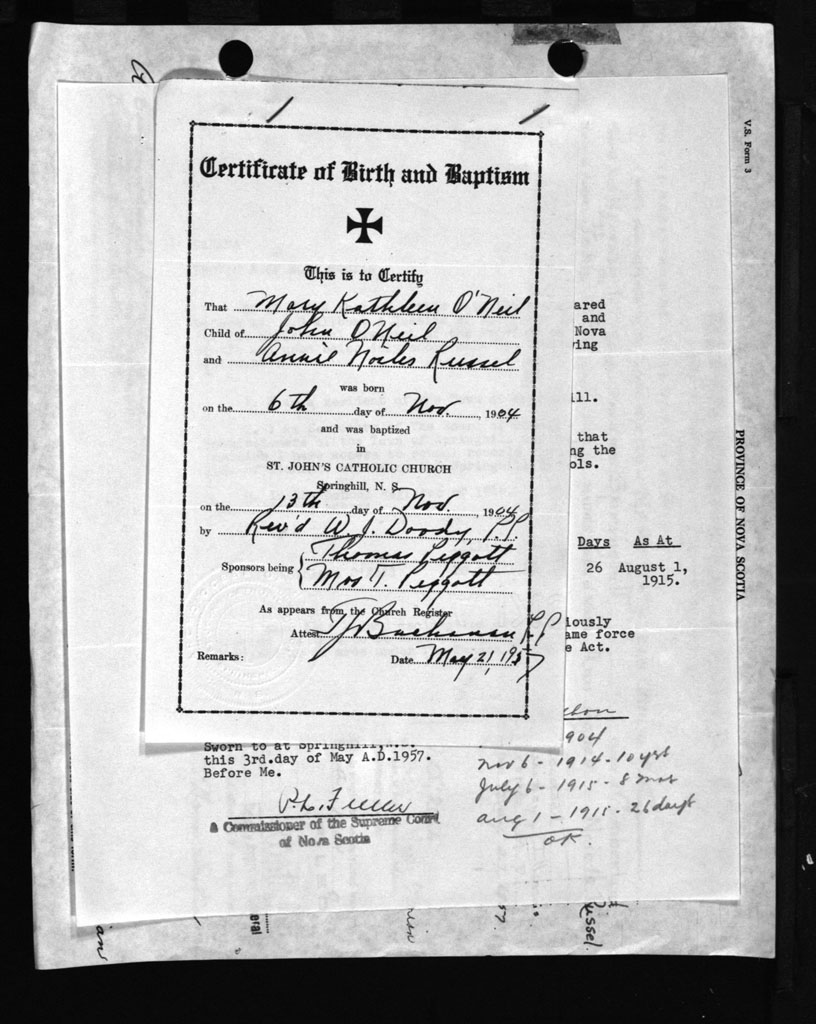 Certificate of Birth and Baptism
This is to Certify
That Mary Kathleen O'Neil
Child of John O'Neil
and Annie Russel
was born
on the 6th day of Nov. 1904
and was baptized
in
ST. JOHN'S CATHOLIC CHURCH
Springhill, N. S.
on the 13th day of Nov. 1904
by Rev'd W. J. Doody, P.P.
Sponsors being { Thomas Peggott
Mrs T. Peggott
As appears from the Church Register
Attest Buchanan P.P.
Remarks: Date May 21, 1957
V.S. Form 3
PROVINCE OF NOVA SCOTIA
ared
and
Nova
ing
ill.
that
ng the
ols.
Days As At
26 August 1,
1915.
iously
ame force
e Act.
904
Nov 6 - 1914 - 10 yrs
July 6 - 1915 - 8 mos
Aug 1 - 1915 - 26 days
OK.
Sworn to at Springhill, N.S.
this 3rd.day of May A.D.1957.
Before Me.
a Commissioner of the Supreme Court
of Nova Scotia
ussel